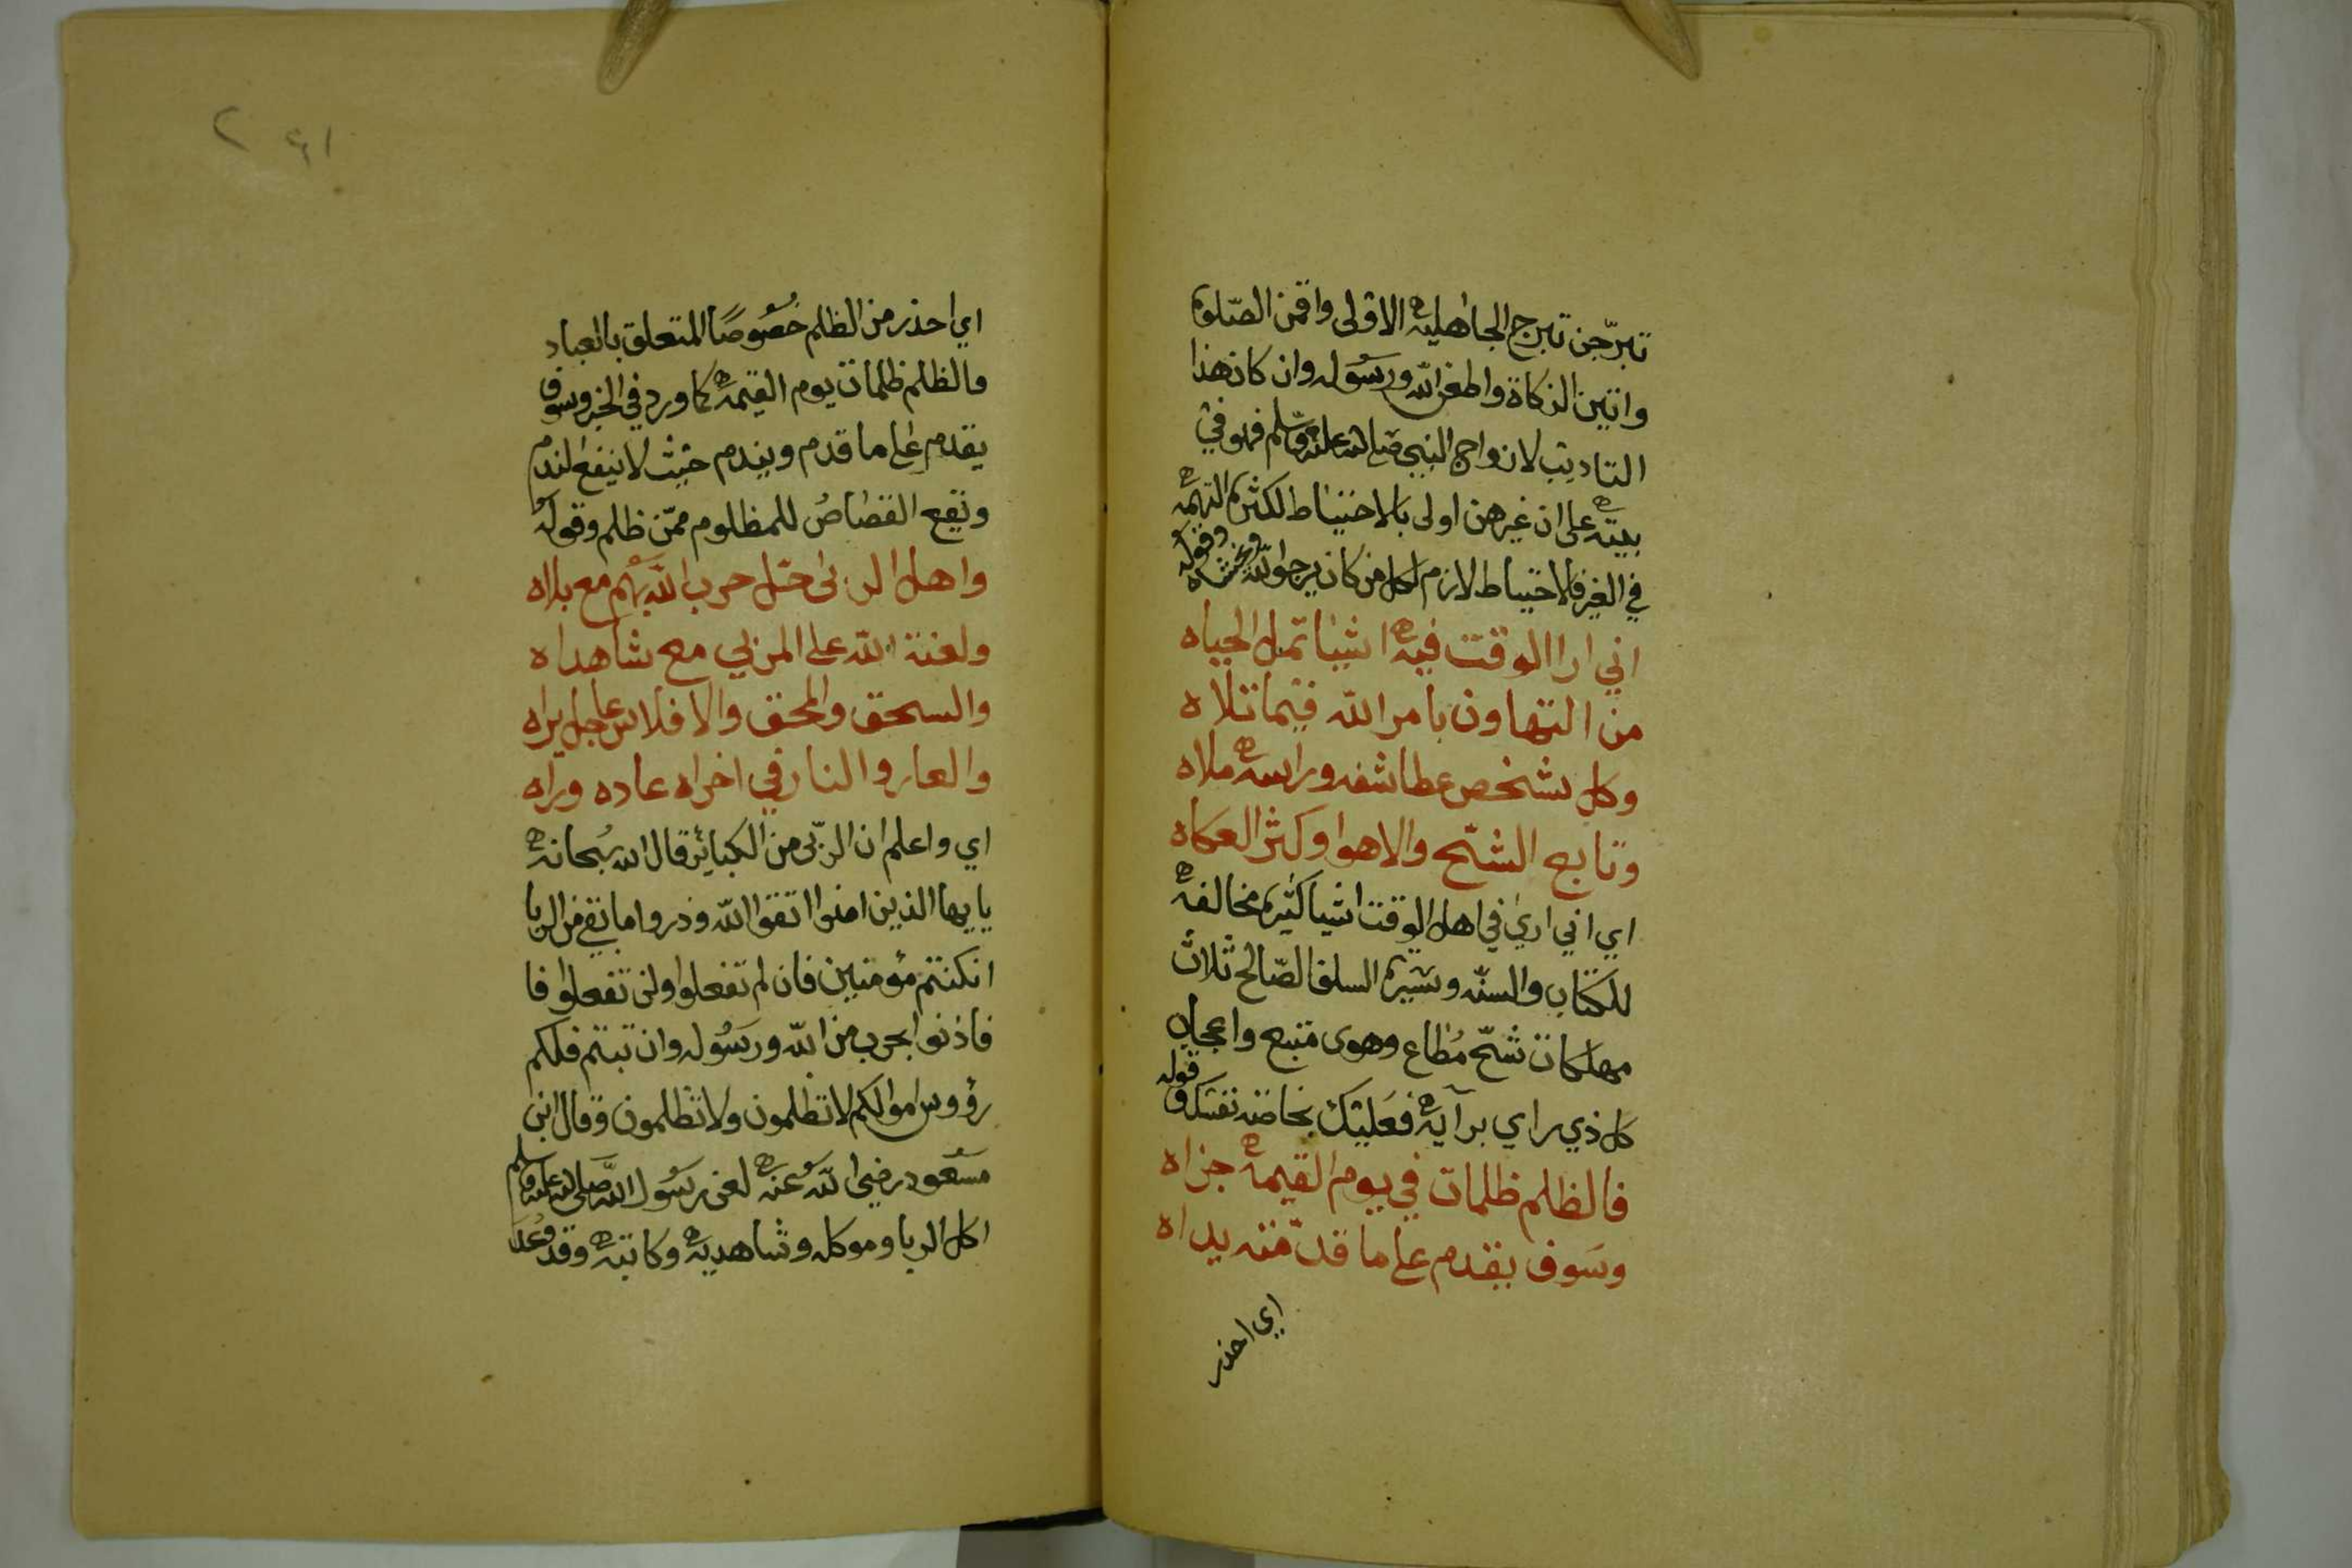 تبرّجن تبرج الجاهليه الاولى واقمن الصّلوة
واتين الزكاة واطعن الله ورسوله وان كان هذا
التاديب لازواج النبي صلى الله عليه وسلم فهو في
بيته على ان غيرهن اولى بالاحتياط لكثرة التهمه
في الغير فالاحتياط لازم لكل من كان يرجوا لله ويخشاه وقوله
اني ارا الوقت فيه اشيا تمل الحياه
من التهاون بامر الله فيما تلاه
وكل شخص عطا شفه وراسه ملاه
وتابع الشّح والاهوا وكثر العكاه
اي اني ارى في اهل الوقت اشيا كثيرة مخالفه
للكتاب والسنّه وسيرة السلف الصّالح ثلاث
مهلكات شحّ مُطاع وهوى متبع واعجاب
كل ذي راي برآيه فعَليك بخاصه نفسك وقوله
فالظلم ظلمات في يوم القيمه جزاه
وسَوف يقدم على ما قدّمته يداه
اي احذر
٢ ٤١
اي احذر من الظلم خصُوصًا المتعلق بالعباد
فالظلم ظلمات يوم القيمه كما ورد في الخبر وسوف
يقدم على ما قدم ويندم حيث لا ينفع الندم
ونقع القصَاصُ للمظلوم ممّن ظلم وقوله
واهل الربى حَل حرب الله بهم مع بلاه
ولعنة الله على المربي مع شاهداه
والسحق والمحق والافلاس عاجل يراه
والعار والنار في اخراه عاده وراه
اي واعلم ان الربّى من الكبائر قال الله سُبحانه
يايها الذين امنوا اتقوا الله وذروا ما بقي من الربا
ان كنتم مؤمنين فان لم تفعلوا ولن تفعلوا فا
فاذنوا بحرب من الله ورسُوله وان تبتم فلكم
رؤوس اموالكم لا تظلمون ولا تظلمون وقال ابن
مسعُود رضي اللهُ عنه لعن رسُول الله صَلى الله عليه وسلم
اكل الربا وموكله وشاهديه وكاتبه وقد وعد